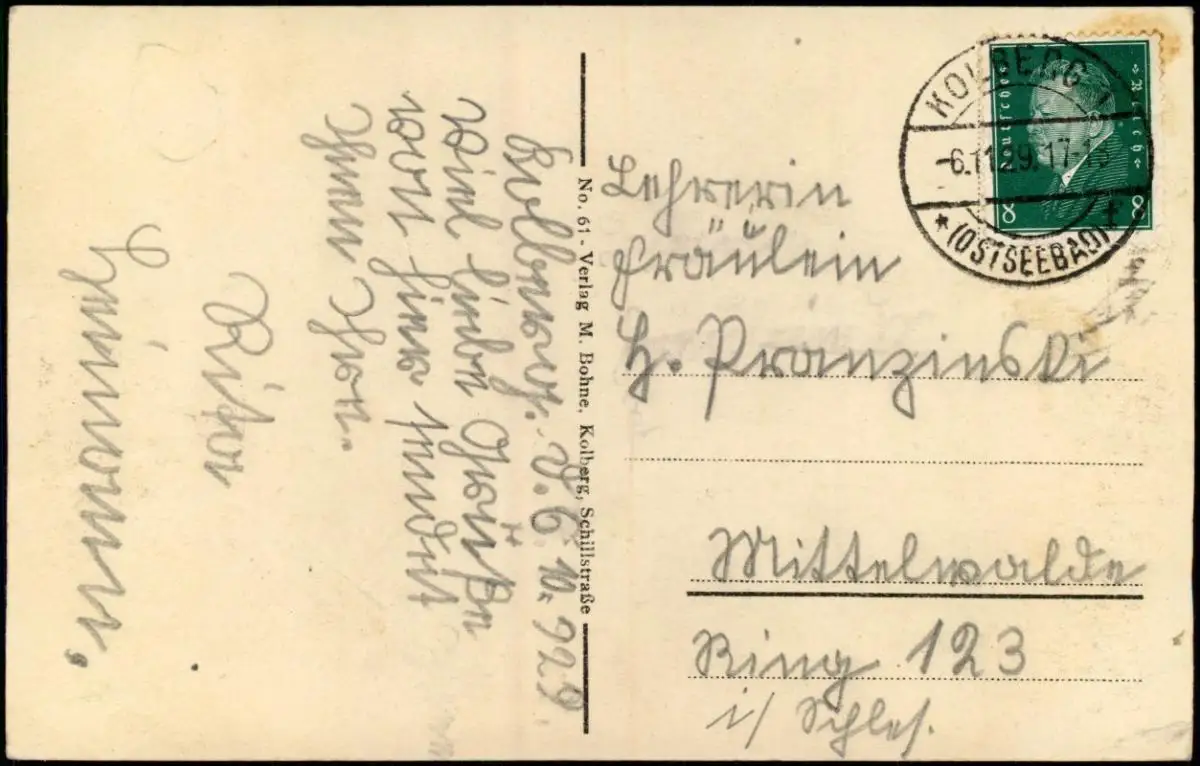 Kolberg. d. 6 10. 929.
Viel liebe Grüße
von hier sendet
Ihnen Ihre.
No. 61 - Verlag M. Bohne, Kolberg, Schillstraße
KOLBERG 1
-6.11.29.17-18
* (OSTSEEBAD) t
Deutsches Reich
8 8
Lehrerin
Fräulein
H. Pranzinski
Mittelwalde
Ring 123
i/ Schles.